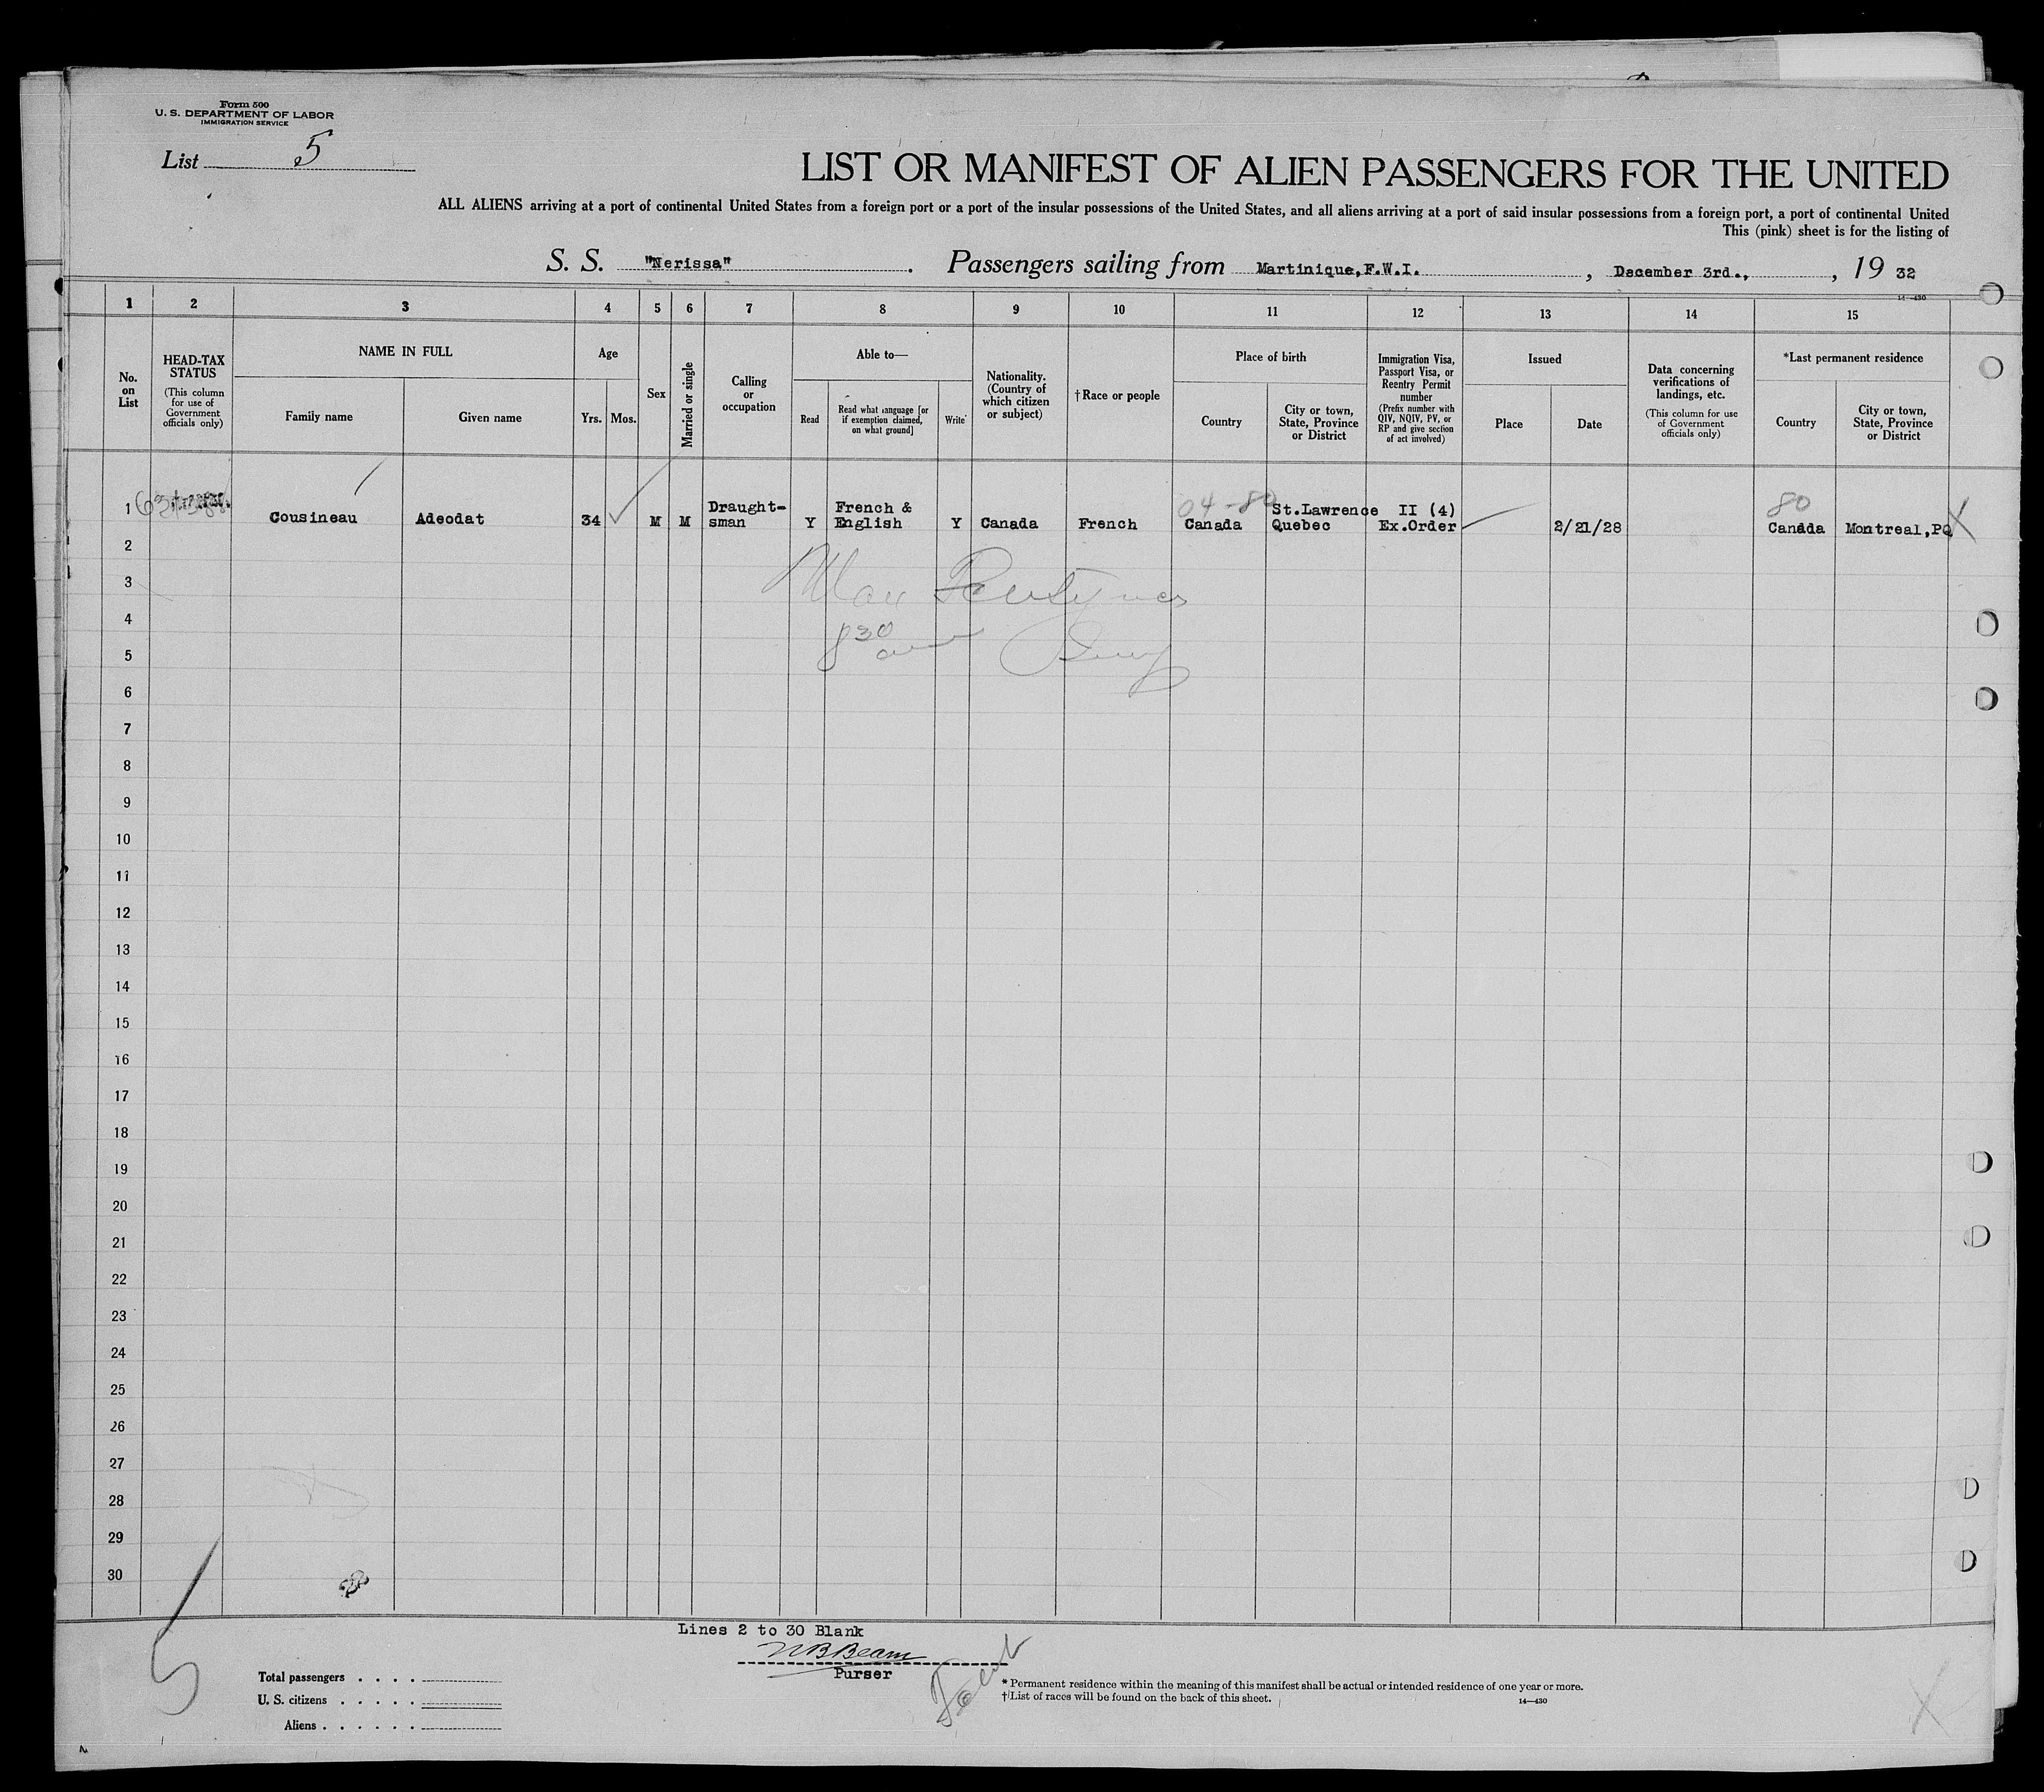 Form 500
U. S. DEPARTMENT OF LABOR
IMMIGRATION SERVICE
List 5
LIST OR MANIFEST OF ALIEN PASSENGERS FOR THE UNITED
ALL ALIENS arriving at a port of continental United States from a foreign port or a port of the insular possessions of the United States, and all aliens arriving at a port of said insular possessions from a foreign port, a port of continental United
This (pink) sheet is for the listing of
S. S. "Nerissa". Passengers sailing from Martinique,F.W.I., December 3rd., , 19 32
14—430
1 2 3 4 5 6 7 8 9 10 11 12 13 14 15
No. on List
HEAD-TAX STATUS
(This column for use of Government officials only)
NAME IN FULL
Family name
Given name
Age
Yrs.
Mos.
Sex
Married or single
Calling or occupation
Able to—
Read
Read what language [or if exemption claimed, on what ground]
Write
Nationality. (Country of which citizen or subject)
†Race or people
Place of birth
Country
City or town, State, Province or District
Immigration Visa, Passport Visa, or Reentry Permit number
(Prefix number with QIV, NQIV, PV, or RP and give section of act involved)
Issued
Place
Date
Data concerning verifications of landings, etc.
(This column for use of Government officials only)
*Last permanent residence
Country
City or town, State, Province or District
04-80
80
1 Cousineau Adeodat 34 M M Draught-sman Y French & English Y Canada French Canada St.Lawrence Quebec II (4) Ex.Order 2/21/28 Canada Montreal,PQ
2
3
4
5
6
7
8
9
10
11
12
13
14
15
16
17
18
19
20
21
22
23
24
25
26
27
28
29
30
830
5
Lines 2 to 30 Blank
Purser
Total passengers . . . .
U. S. citizens . . . . .
Aliens . . . . . .
* Permanent residence within the meaning of this manifest shall be actual or intended residence of one year or more.
† List of races will be found on the back of this sheet.
14—430